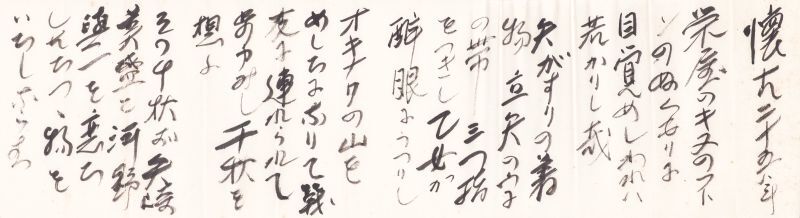 懐古二十五年
栄屋のキヌのフト
ンのぬくもりに
目覚めしわれハ
若かりし哉
矢がすりの着
物 立矢の字
の帯 三つ指
をつきし乙女か
酔眼にうつりし
オキナワの山を
めしひになりて戦
友に連れられて
あゆみし千状を
想ふ
その千状が矢崎
美盛と河野
與一を恋ひ
しんたつゝ物を